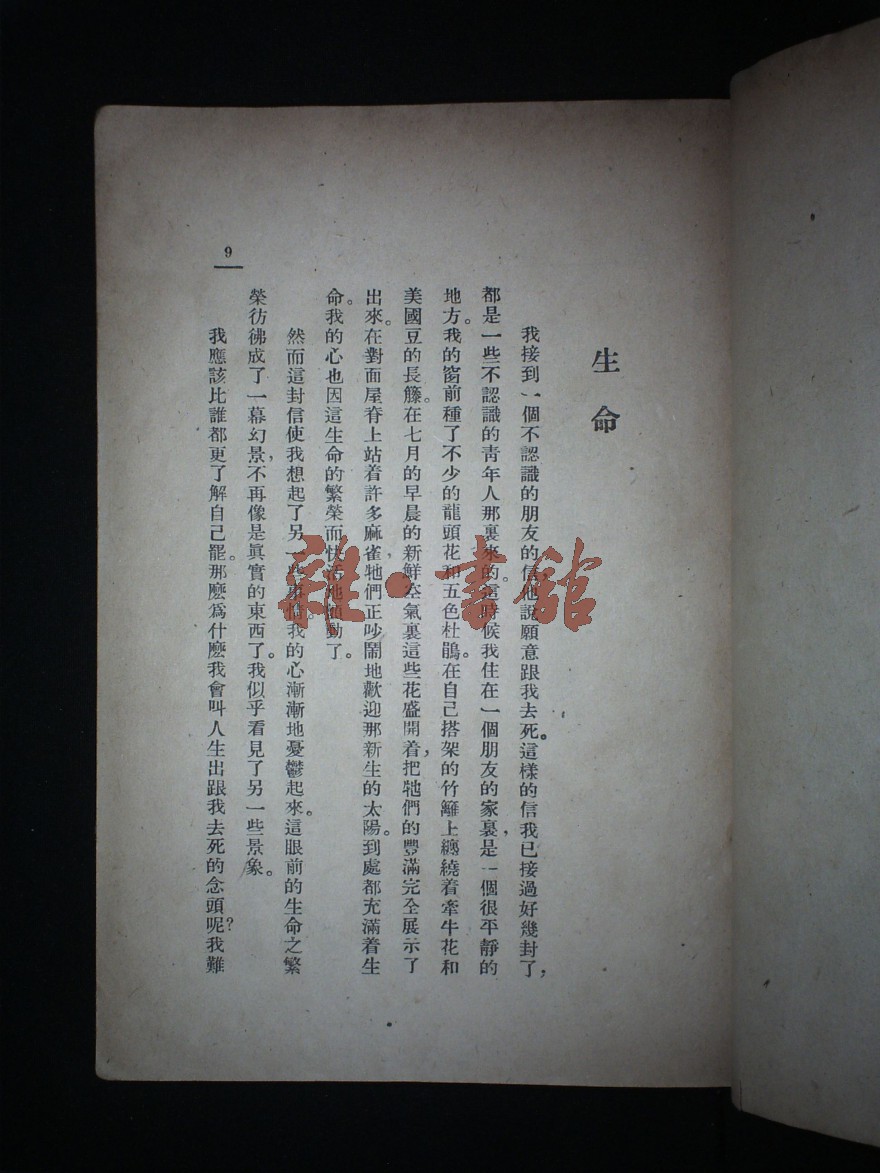 生命
我接到一個不認識的朋友的信，他說願意跟我去死。這樣的信我已接過好幾封了，
都是一些不認識的靑年人那裏來的。這時候我住在一個朋友的家裏，是一個很平靜的
地方。我的窗前種了不少的龍頭花和五色杜鵑。在自己搭架的竹籬上纏繞着牽牛花和
美國豆的長籐。在七月的早晨的新鮮空氣裏這些花盛開着，把牠們的豐滿完全展示了
出來。在對面屋脊上站着許多麻雀，牠們正吵鬧地歡迎那新生的太陽。到處都充滿着生
命。我的心也因這生命的繁榮而快活地動了。
然而這封信使我想起了另一些事情。我的心漸漸地憂鬱起來。這眼前的生命之繁
榮彷彿成了一幕幻景，不再像是眞實的東西了。我似乎看見了另一些景象。
我應該比誰都更了解自己罷。那麽爲什麽我會叫人生出跟我去死的念頭呢？我難
9
雜·書館